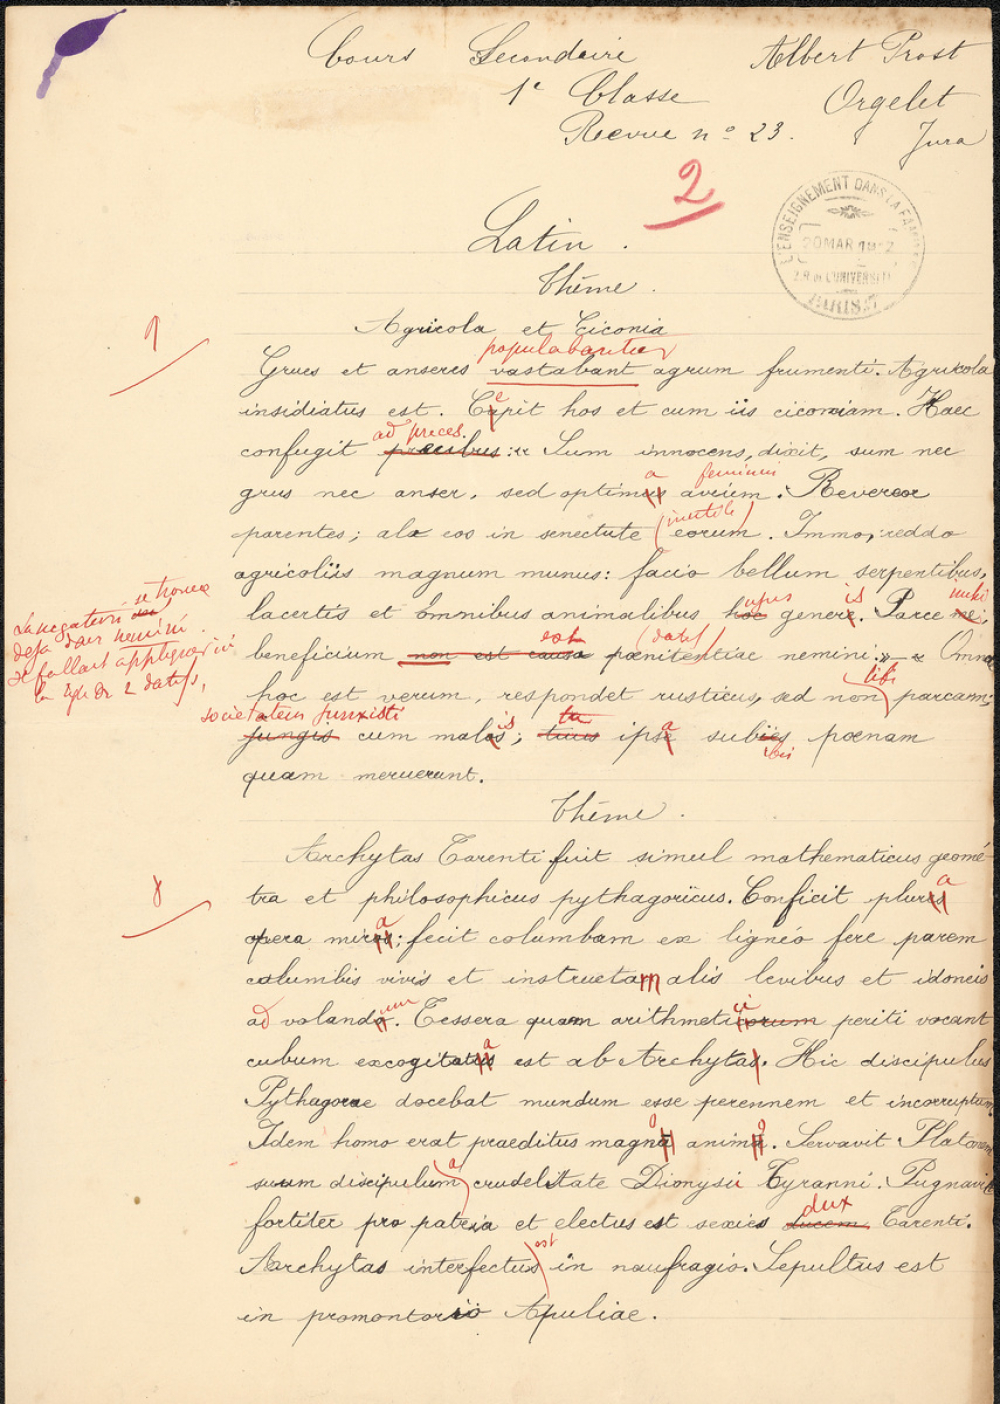 Cours Secondaire Albert Prost
1e Classe Orgelet
Revue no 23. Jura
2
L'ENSEIGNEMENT DANS LA
20 MAR
2.R de L'UNIVERSITE
PARIS
Latin.
Thème.
Agricola et Ciconia
populabantur
9
Grues et anseres vastabant agrum frumenti. Agricola
insidiatus est. Cepit hos et cum iis ciconiam. Haec
ad preces.
confugit precibus: « Sum innocens, dixit, sum nec
a feminini
grus nec anser, sed optimus avium. Revereor
(inutile)
parentes; alo eos in senectute eorum. Immo, reddo
agricoliis magnum munus: facio bellum serpentibus,
ejus is mihi
lacertis et omnibus animalibus hoc genere. Parce mei;
se trouve
La négation
déjà dans nemini.
Il fallait appliquer ici
la règle de 2 datifs,
est (datif)
beneficium non est causa pœnitentiae nemini.» « Omne
tibi
hoc est verum, respondet rusticus, sed non parcam;
societatem junxisti
is tu
jungis cum malos; tuus ipse subies pœnam
quam meruerunt.
Thème.
Archytas Tarenti fuit simul mathematicus geomé-
8
tra et philosophicus pythagoricus. Conficit plures
a
opera miros; fecit columbam ex ligneo fere parem
columbis vivis et instructam alis levibus et idoneis
ad um
volando. Tessera quam arithmeticorum periti vocant
ci
cubum excogitatus est ab Archytas. Hic discipulus
Pythagorae docebat mundum esse perennem et incorruptum
Idem homo erat praeditus magna anima. Servavit Platonem
a
suum discipulum crudelitate Dionysii Tyranni. Pugnavit
dux
fortiter pro patria et electus est sexies ducem Tarenti.
est
Archytas interfectus in naufragio. Sepultus est
in promontorio Apuliae.